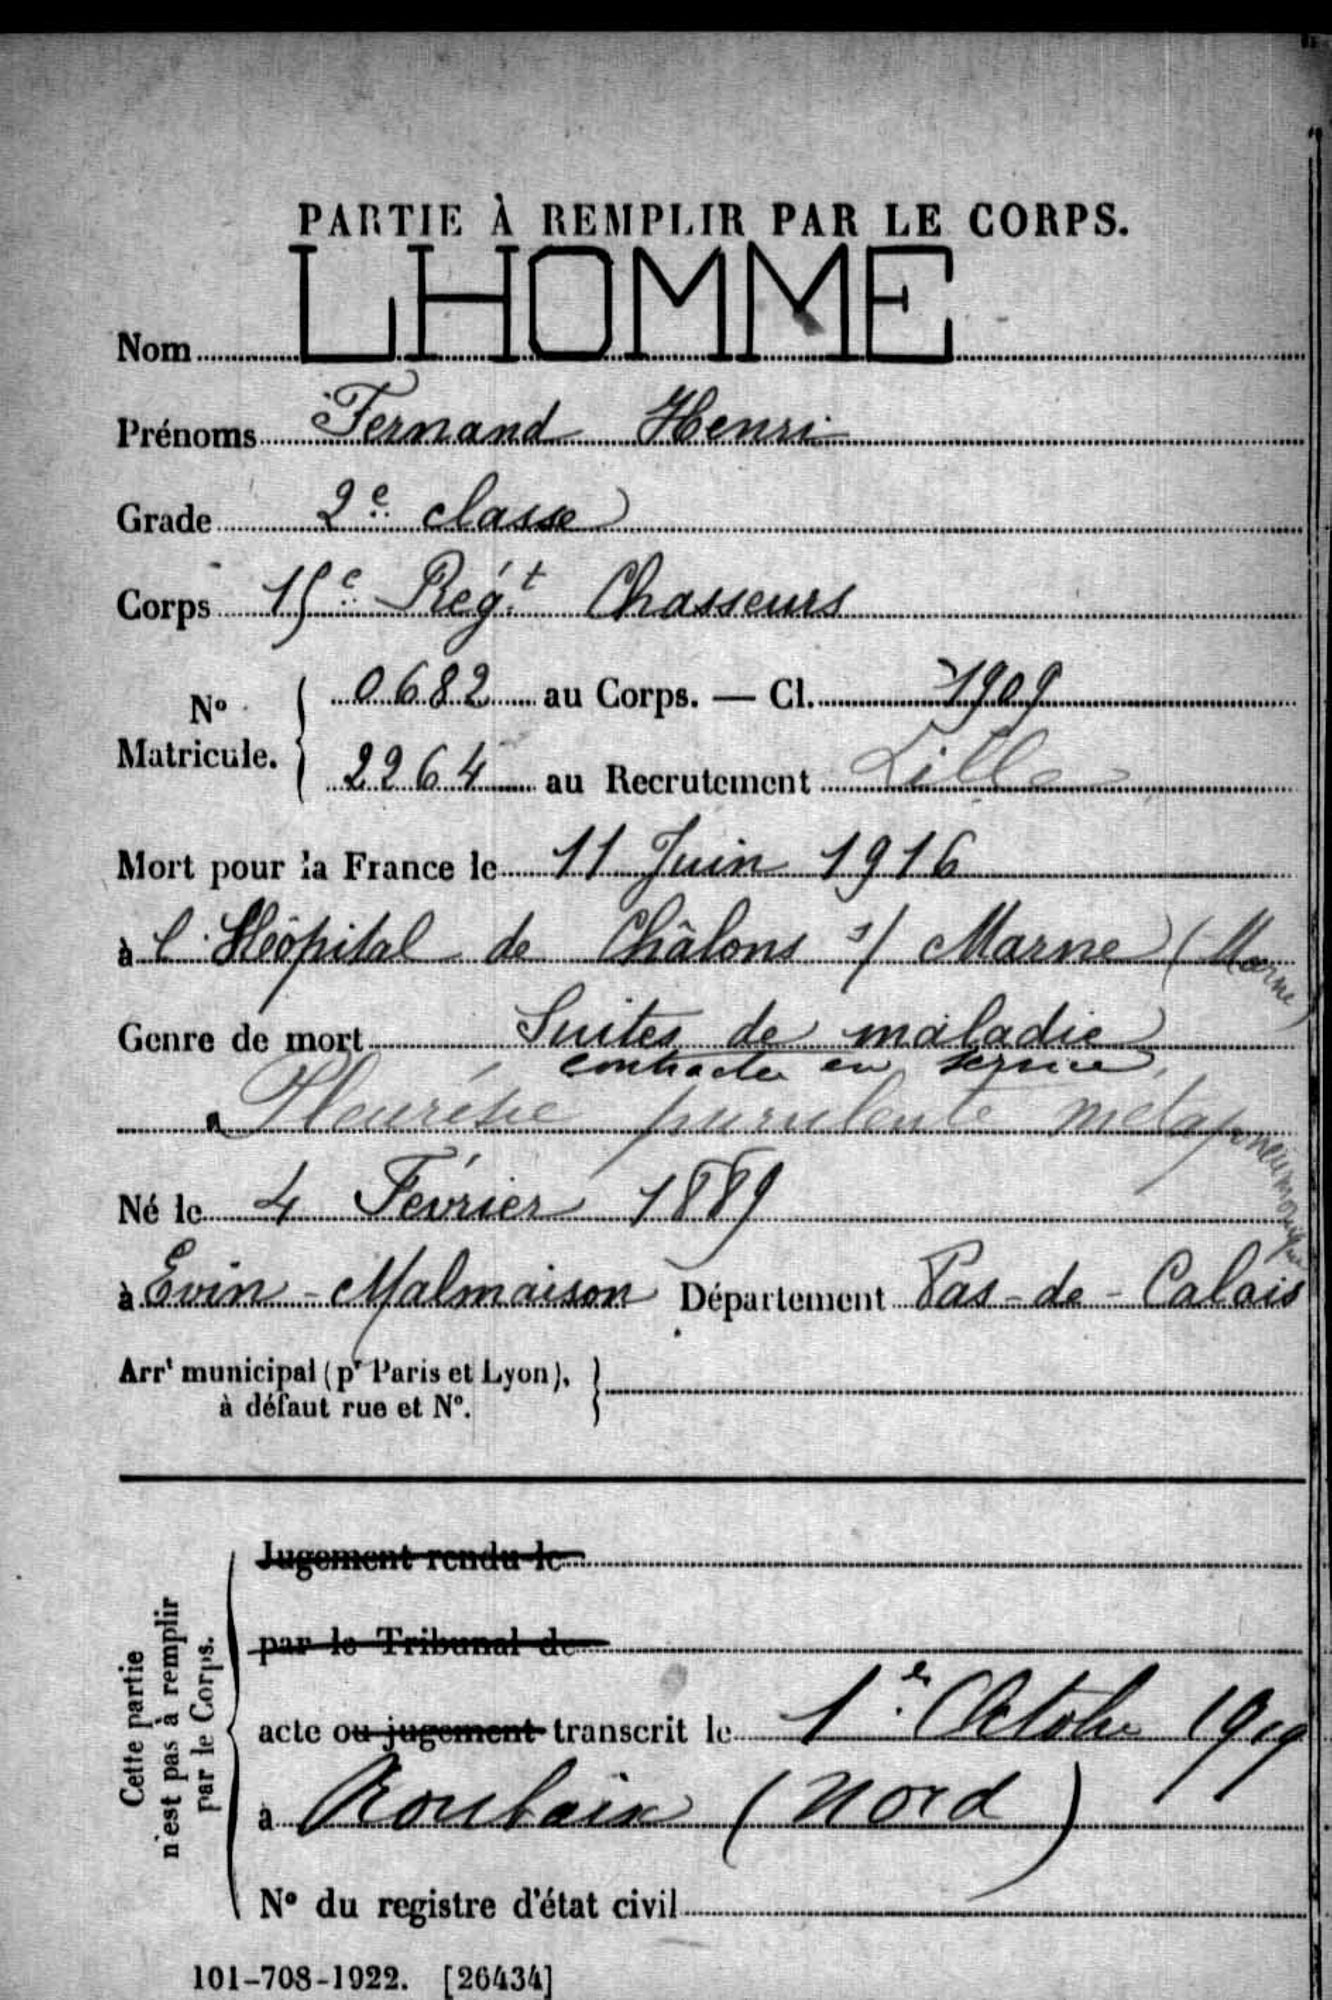 PARTIE À REMPLIR PAR LE CORPS.
Nom LHOMME
Prénoms Fernand Henri
Grade 2e classe
Corps 15e Régt Chasseurs
No Matricule. 0682 au Corps. — Cl. 1909
2264 au Recrutement Lille
Mort pour la France le 11 Juin 1916
à l'Hôpital de Châlons s/ Marne (Marne)
Genre de mort Suites de maladie
contractée en service,
Pleurésie purulente métapneumonique
Né le 4 Février 1889
à Evin-Malmaison Département Pas-de-Calais
Arrt municipal (pr Paris et Lyon),
à défaut rue et No.
Cette partie
n'est pas à remplir
par le Corps.
Jugement rendu le
par le Tribunal de
acte ou jugement transcrit le 1er Octobre 1919
à Roubaix (Nord)
No du registre d'état civil
101-708-1922. [26434]